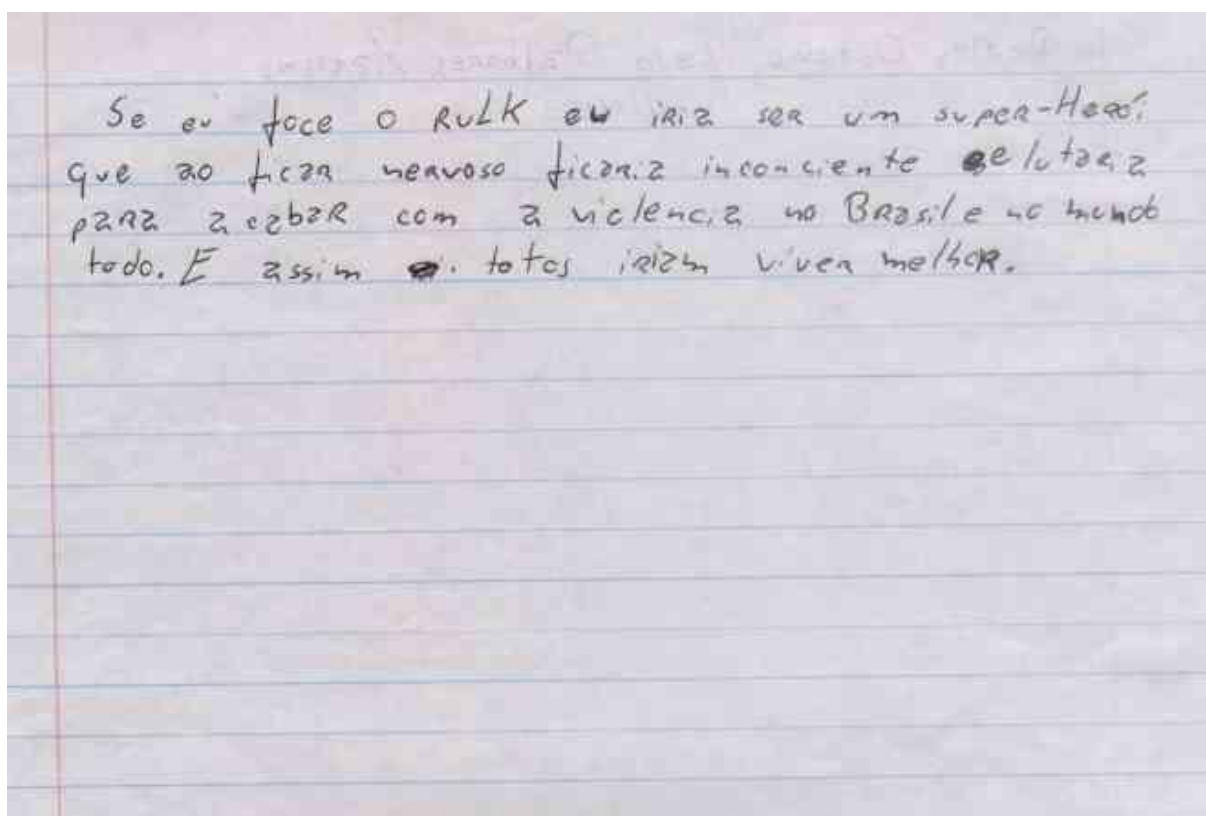 Se eu foce o RULK eu iria ser um super-Heroí
que ao ficar nervoso ficaria inconciente e lutaria
para acabar com a violencia no Brasil e no mundo
todo. E assim totos iriam viver melhor.